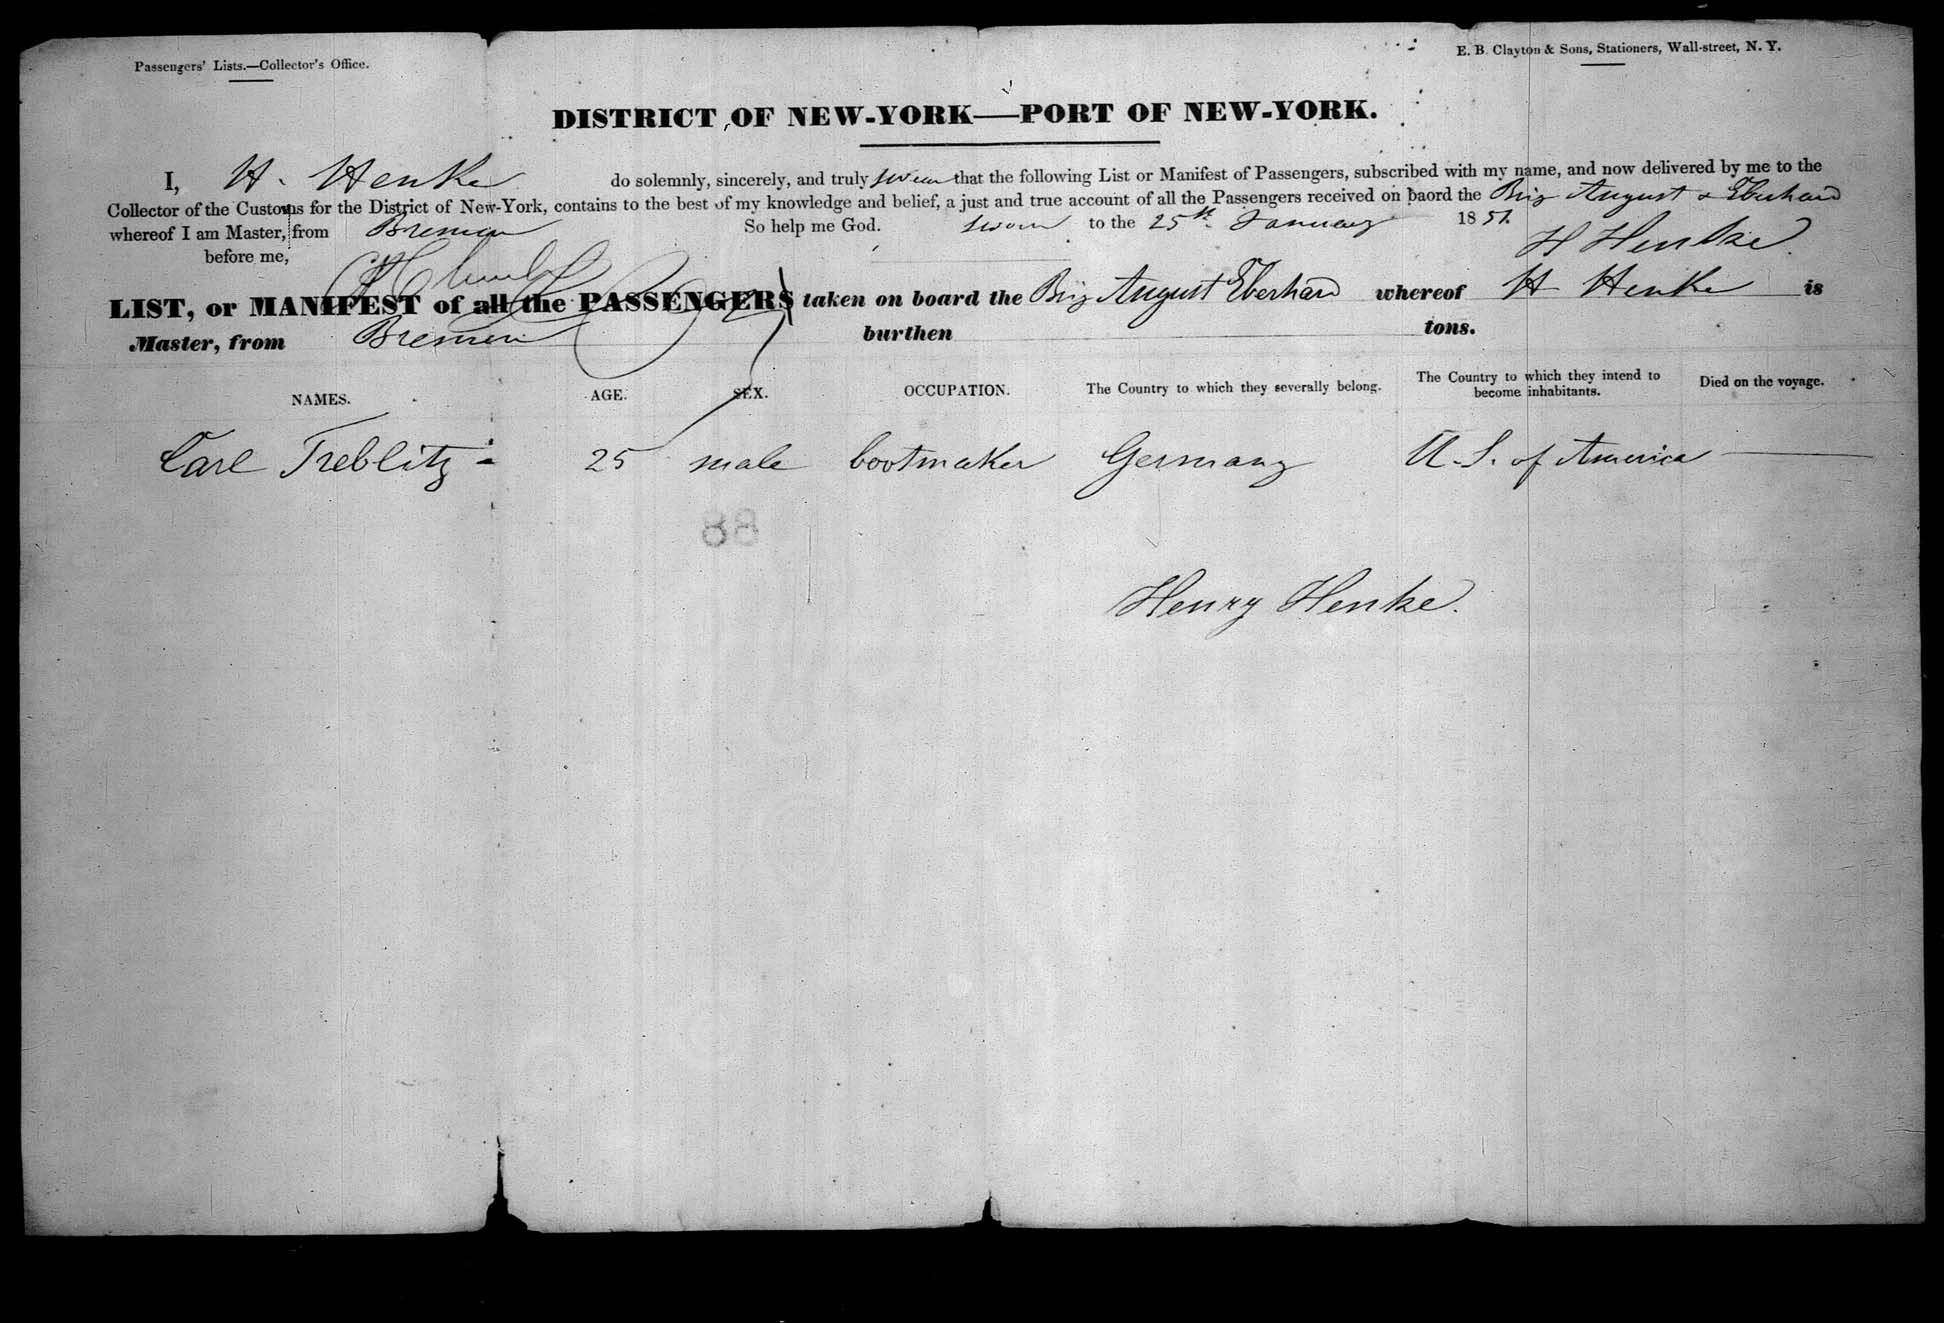 Passengers' Lists.—Collector's Office.
E. B. Clayton & Sons, Stationers, Wall-street, N. Y.
DISTRICT OF NEW-YORK—PORT OF NEW-YORK.
I, H. Henke do solemnly, sincerely, and truly swear that the following List or Manifest of Passengers, subscribed with my name, and now delivered by me to the
Collector of the Customs for the District of New-York, contains to the best of my knowledge and belief, a just and true account of all the Passengers received on baord the Brig August & Eberhard
whereof I am Master, from Bremen So help me God. sworn to the 25th January 1851.
before me, H Henke
LIST, or MANIFEST of all the PASSENGERS taken on board the Brig August Eberhard whereof H Henke is
Master, from Bremen burthen tons.
NAMES. AGE. SEX. OCCUPATION. The Country to which they severally belong. The Country to which they intend to become inhabitants. Died on the voyage.
Carl Treblitz 25 male bootmaker Germany U. S. of America
88
Henry Henke.